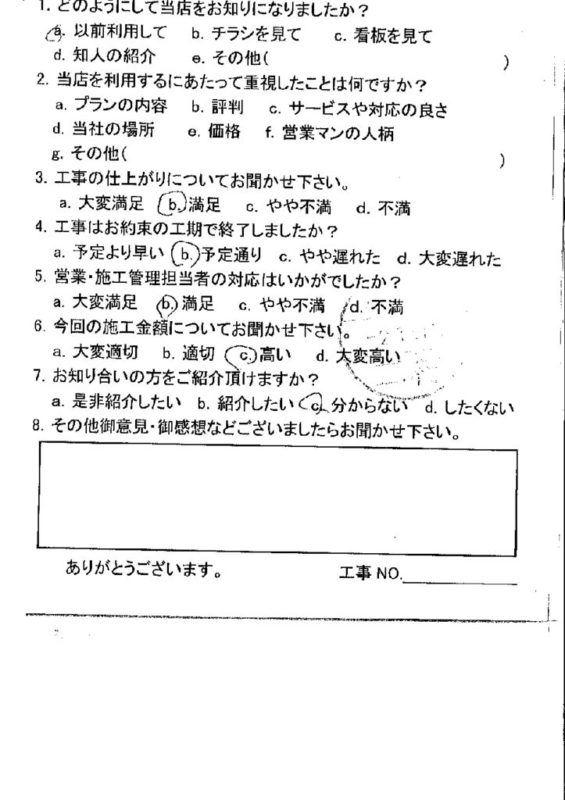 1. どのようにして当店をお知りになりましたか？
a. 以前利用して　b. チラシを見て　c. 看板を見て
d. 知人の紹介　e. その他(　)
2. 当店を利用するにあたって重視したことは何ですか？
a. プランの内容　b. 評判　c. サービスや対応の良さ
d. 当社の場所　e. 価格　f. 営業マンの人柄
g. その他(　)
3. 工事の仕上がりについてお聞かせ下さい。
a. 大変満足　b. 満足　c. やや不満　d. 不満
4. 工事はお約束の工期で終了しましたか？
a. 予定より早い　b. 予定通り　c. やや遅れた　d. 大変遅れた
5. 営業・施工管理担当者の対応はいかがでしたか？
a. 大変満足　b. 満足　c. やや不満　d. 不満
6. 今回の施工金額についてお聞かせ下さい。
a. 大変適切　b. 適切　c. 高い　d. 大変高い
7. お知り合いの方をご紹介頂けますか？
a. 是非紹介したい　b. 紹介したい　c. 分からない　d. したくない
8. その他御意見・御感想などございましたらお聞かせ下さい。
ありがとうございます。　工事 NO.